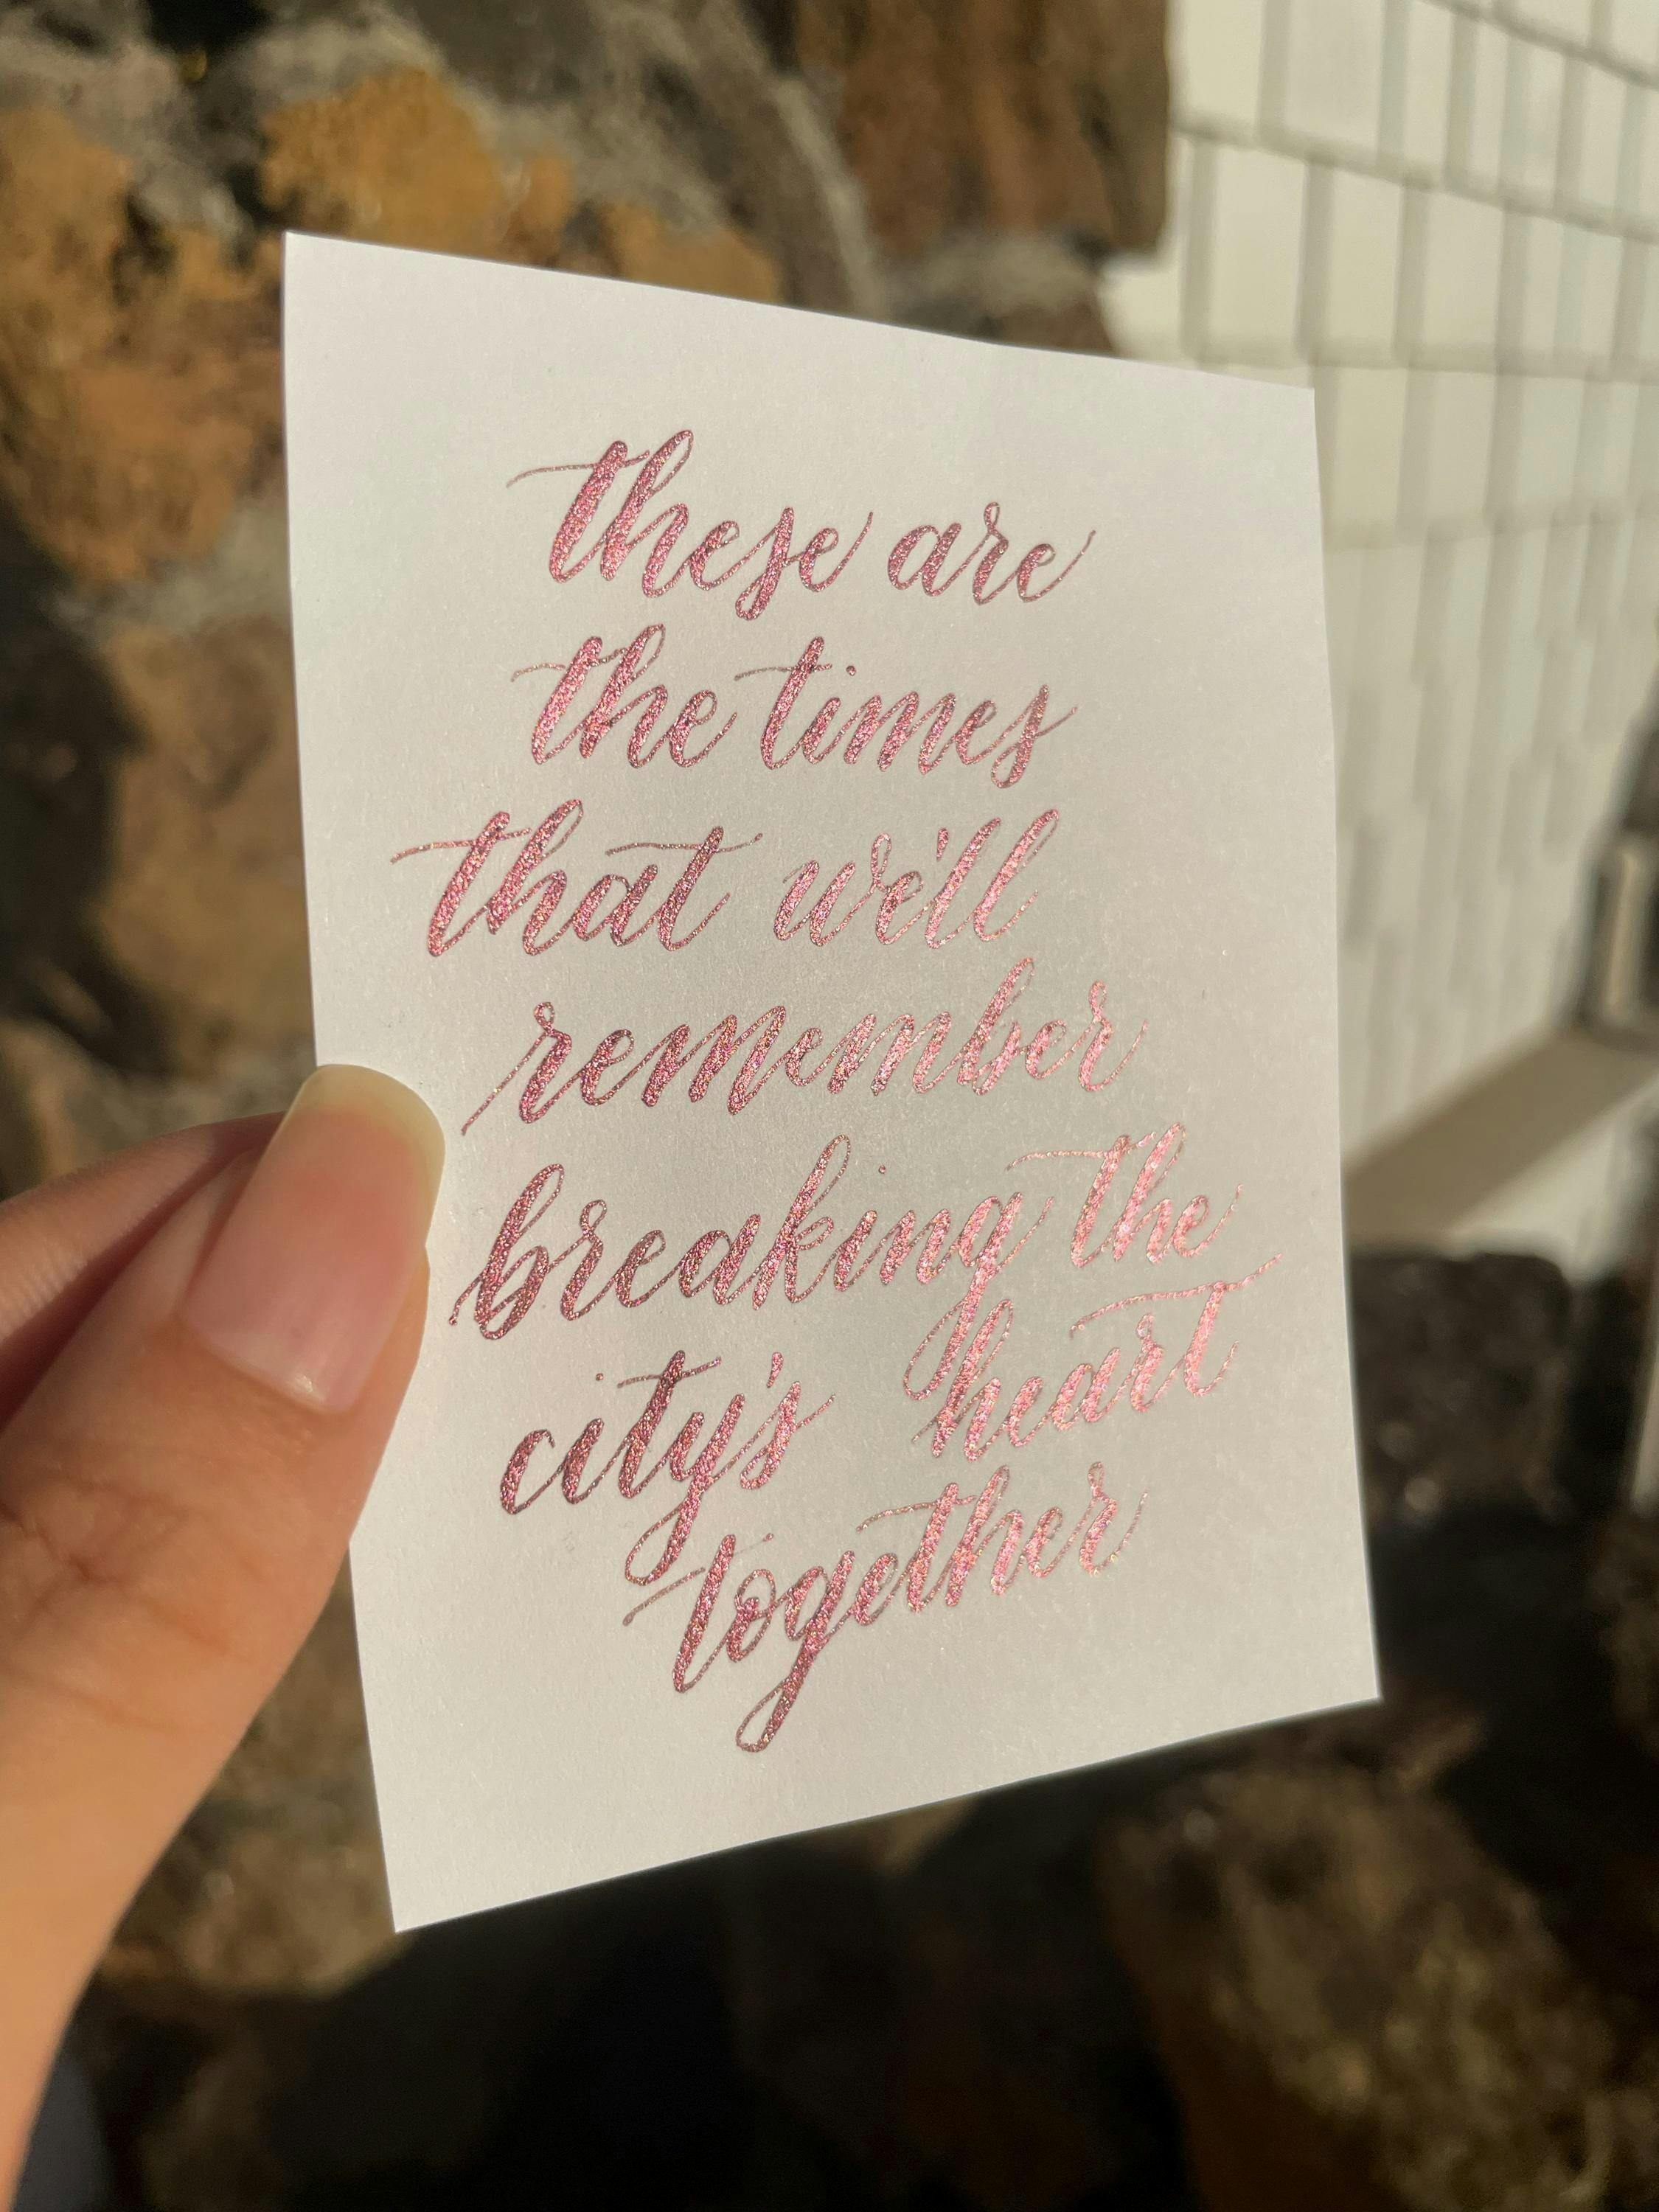 these are
the times
that we'll
remember
breaking the
city's heart
together